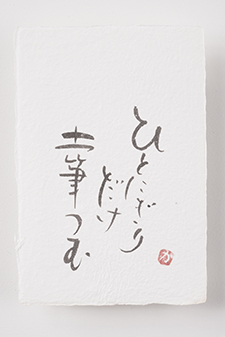 ひとにぎり
だけ
土筆つむ
か